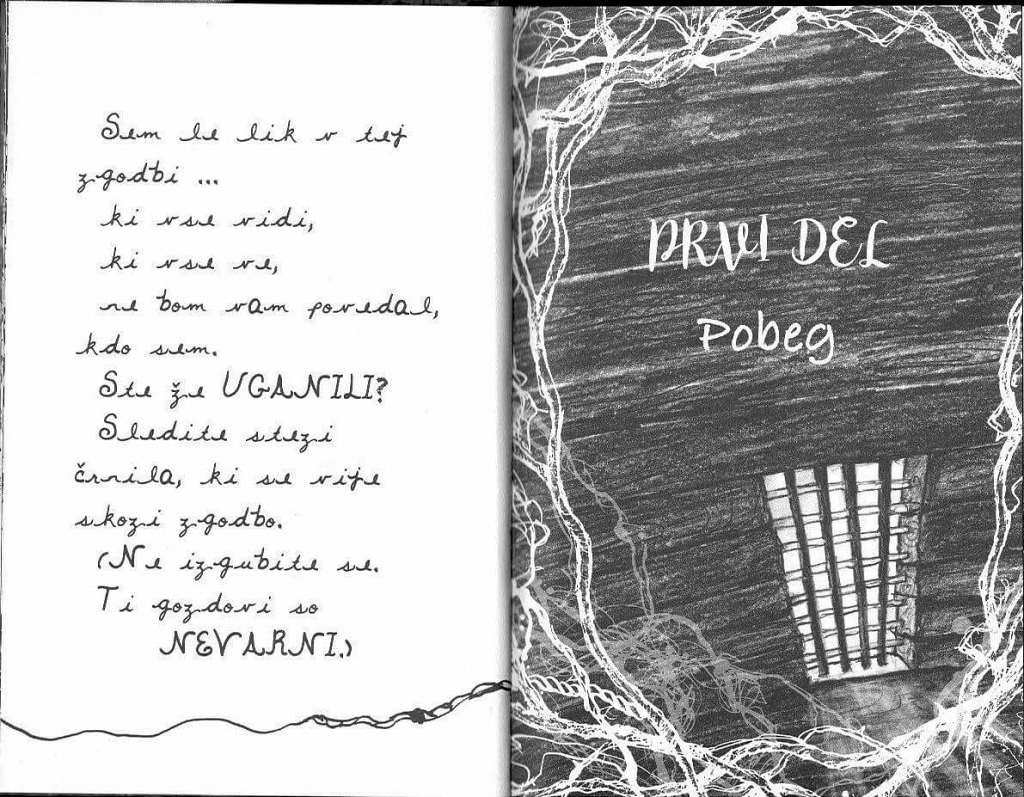 Sem le lik v tej
zgodbi ...
ki vse vidi,
ki vse ve,
ne bom vam povedal,
kdo sem.
Ste že UGANILI?
Sledite stezi
črnila, ki se vije
skozi zgodbo.
(Ne izgubite se.
Ti gozdovi so
NEVARNI.)
PRVI DEL
Pobeg